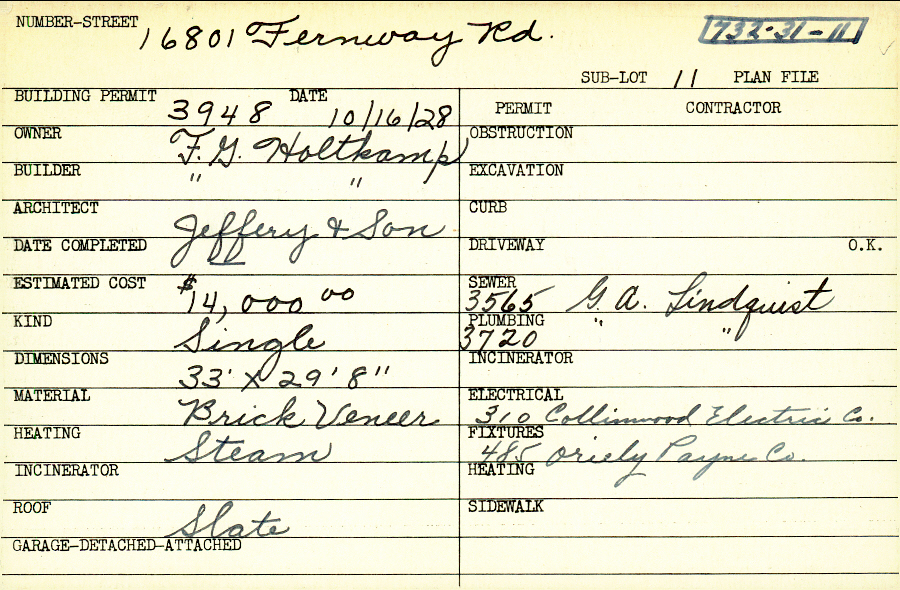 NUMBER-STREET 16801 Fernway Rd. 732-31-11
SUB-LOT 11 PLAN FILE
BUILDING PERMIT 3948 DATE 10/16/28
PERMIT CONTRACTOR
OWNER F. G. Holtkamp
OBSTRUCTION
BUILDER " "
EXCAVATION
ARCHITECT Jeffery & Son
CURB
DATE COMPLETED
DRIVEWAY O.K.
ESTIMATED COST $14,000 00
SEWER 3565 G. A. Lindquist
KIND Single
PLUMBING 3720 " "
DIMENSIONS 33' X 29' 8"
INCINERATOR
MATERIAL Brick Veneer
ELECTRICAL 310 Collinwood Electric Co.
HEATING Steam
FIXTURES 485 Oriely Payne Co.
INCINERATOR
HEATING
ROOF Slate
SIDEWALK
GARAGE-DETACHED-ATTACHED